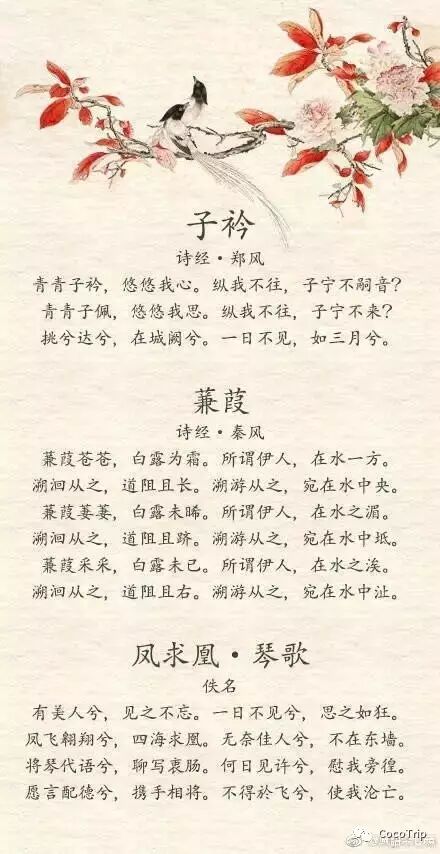 子衿
诗经·郑风
青青子衿，悠悠我心。纵我不往，子宁不嗣音？
青青子佩，悠悠我思。纵我不往，子宁不来？
挑兮达兮，在城阙兮。一日不见，如三月兮。
蒹葭
诗经·秦风
蒹葭苍苍，白露为霜。所谓伊人，在水一方。
溯洄从之，道阻且长。溯游从之，宛在水中央。
蒹葭萋萋，白露未晞。所谓伊人，在水之湄。
溯洄从之，道阻且跻。溯游从之，宛在水中坻。
蒹葭采采，白露未已。所谓伊人，在水之涘。
溯洄从之，道阻且右。溯游从之，宛在水中沚。
凤求凰·琴歌
佚名
有美人兮，见之不忘。一日不见兮，思之如狂。
凤飞翱翔兮，四海求凰。无奈佳人兮，不在东墙。
将琴代语兮，聊写衷肠。何日见许兮，慰我旁徨。
愿言配德兮，携手相将。不得於飞兮，使我沦亡。
CocoTrip